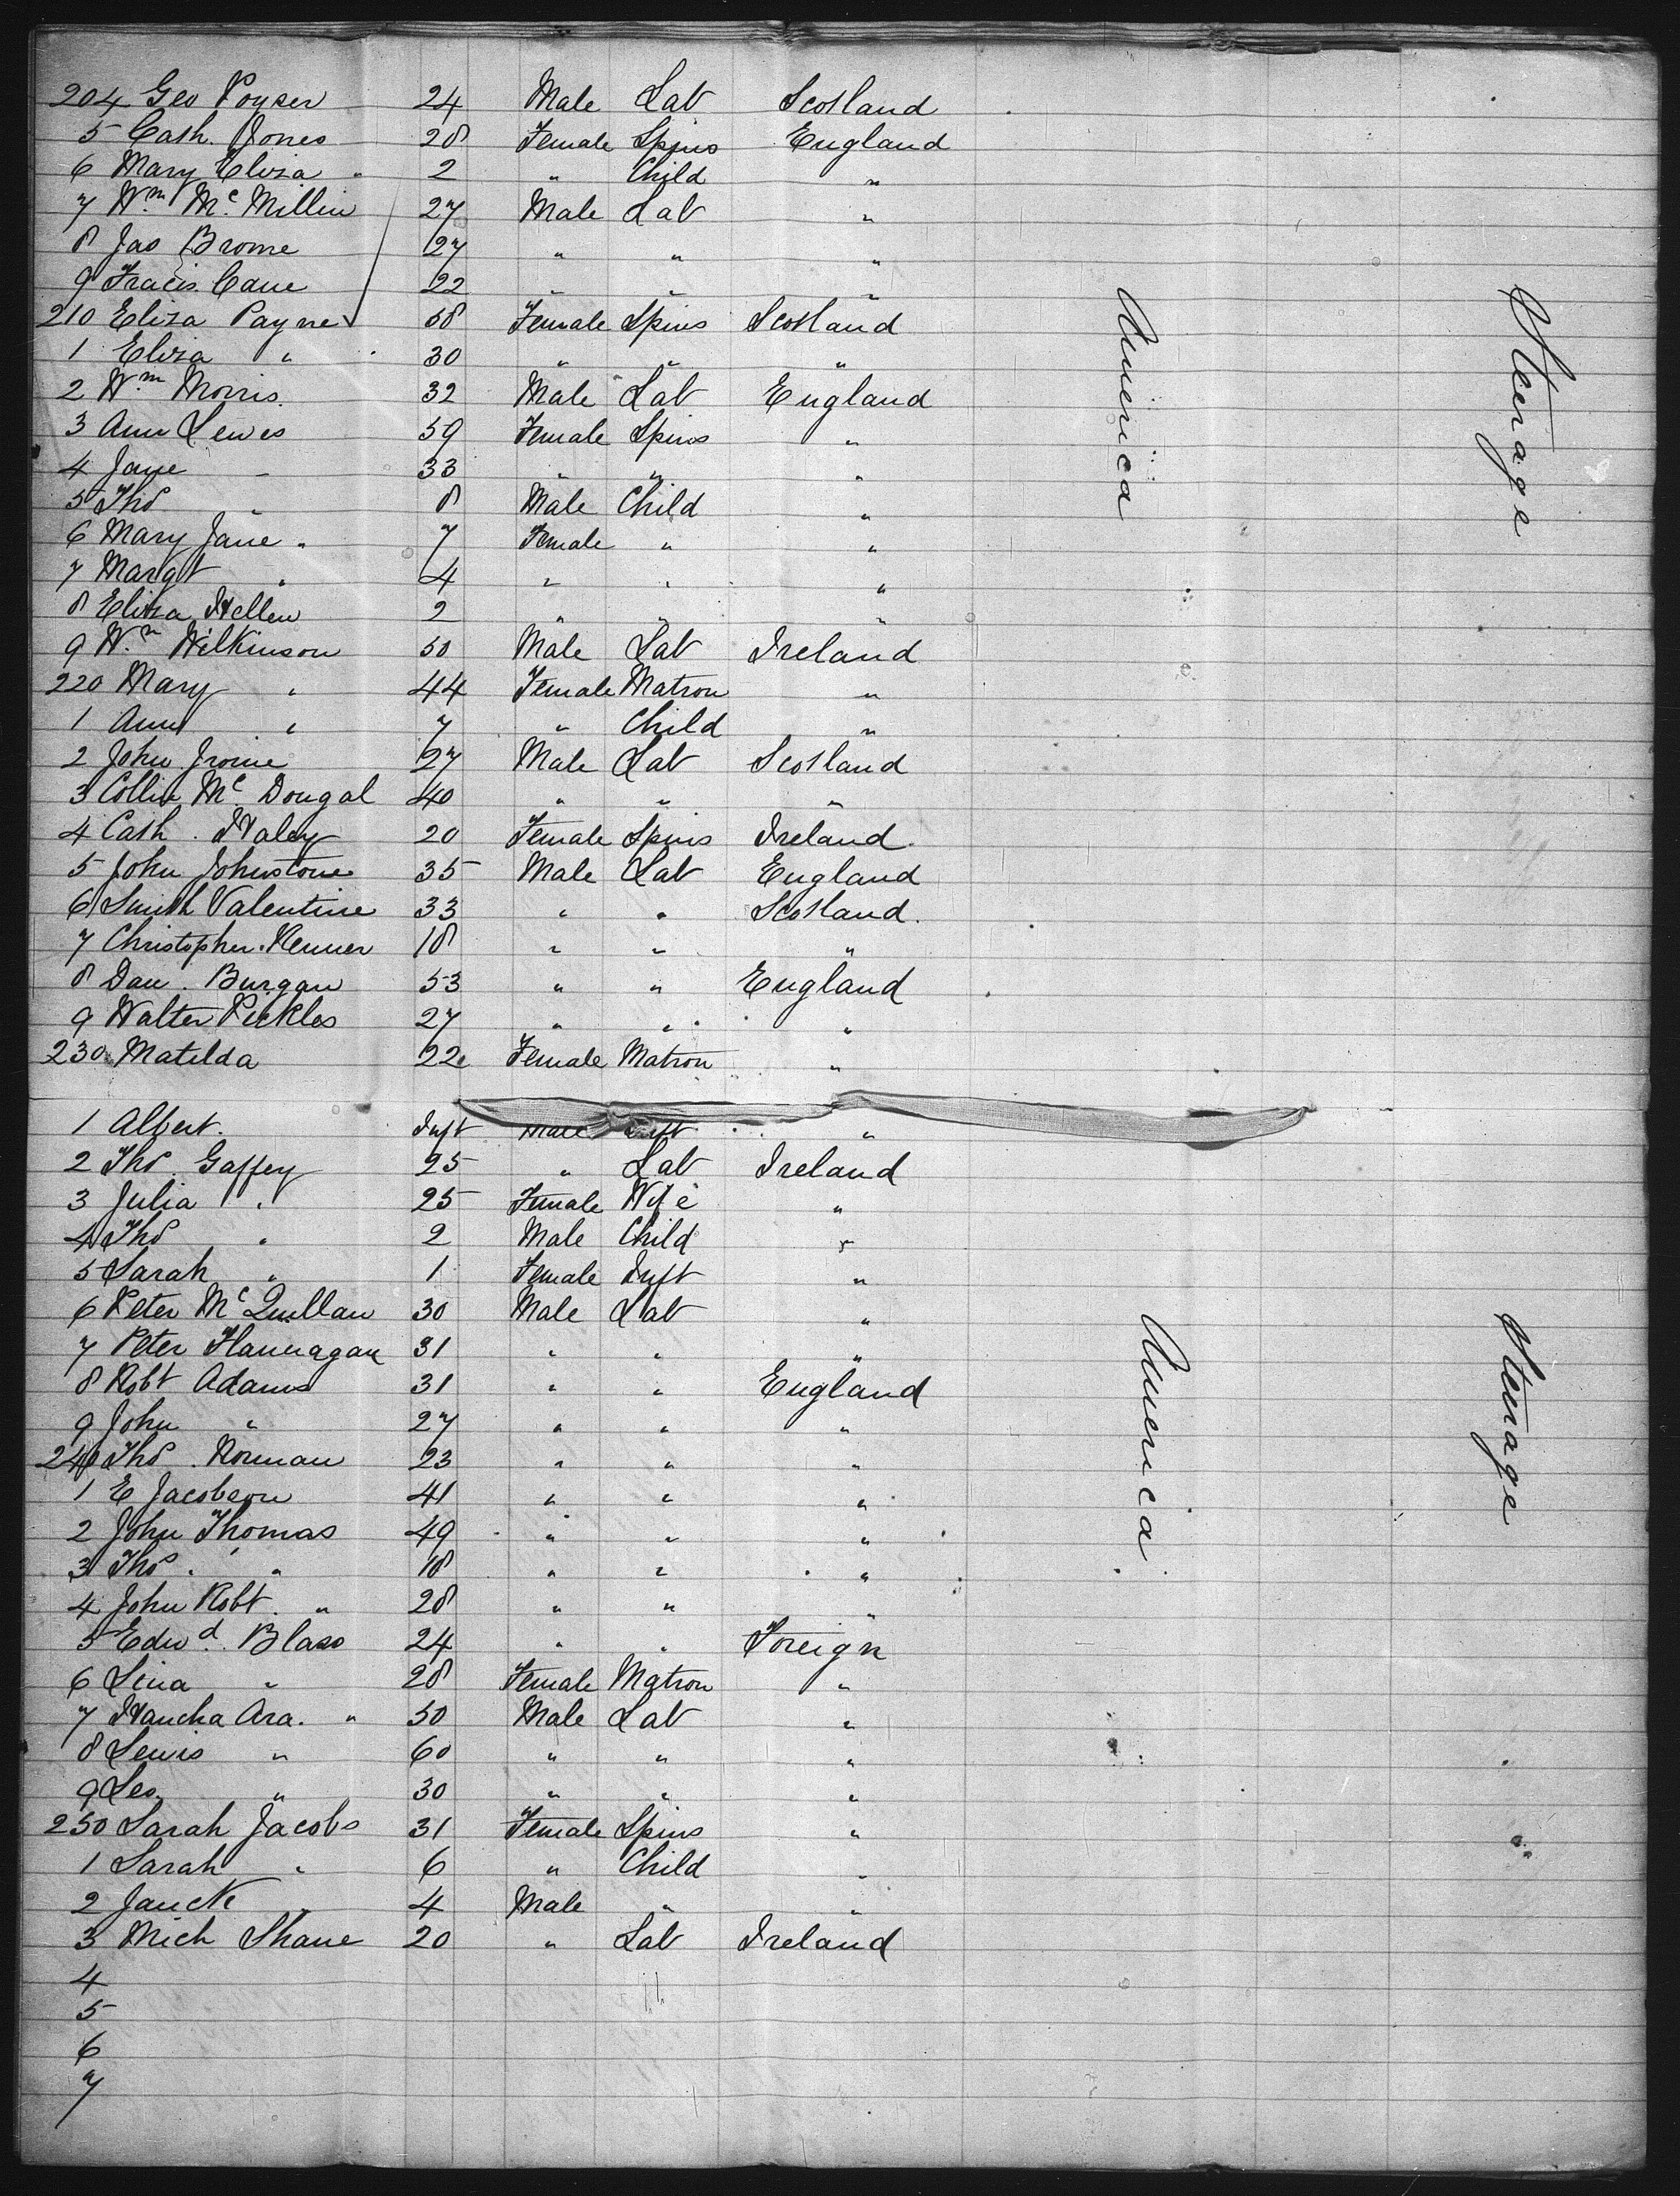 204 Geo Poyser 24 Male Lab Scotland
5 Cath. Jones 28 Female Spins England
6 Mary Eliza " 2 " Child "
7 Wm Mc Millin 27 Male Lab "
8 Jas Brome 27 " " "
9 Fracis Cane 22 " " "
210 Eliza Payne 58 Female Spins Scotland
1 Eliza " 30 " " "
2 Wm Morris. 32 Male Lab England
3 Ann Lewes 59 Female Spins "
4 Jane " 33 " " "
5 Thos " 8 Male Child "
6 Mary Jane " 7 Female " "
7 Margt " 4 " " "
8 Eliza Hellen 2 " " "
9 Wm Wilkinson 50 Male Lab Ireland
220 Mary " 44 Female Matron "
1 Ann " 7 " Child "
2 John Irvine 27 Male Lab Scotland
3 Collin Mc Dougal 40 " " "
4 Cath. Haley 20 Female Spins Ireland.
5 John Johnstone 35 Male Lab England
6 Smith Valentine 33 " " Scotland.
7 Christopher Kenner 18 " " "
8 Dan. Burgan 53 " " England
9 Walter Pickles 27 " " "
230 Matilda 22 Female Matron "
1 Albert. Inft Male Inft "
2 Thos. Gaffey 25 " Lab Ireland
3 Julia " 25 Female Wife "
4 Thos " 2 Male Child "
5 Sarah " 1 Female Inft "
6 Peter Mc Quillan 30 Male Lab "
7 Peter Flannagan 31 " " "
8 Robt Adams 31 " " England
9 John " 27 " " "
240 Thos. Norman 23 " " "
1 E Jacobson 41 " " "
2 John Thomas 49 " " "
3 Thos. " 18 " " "
4 John Robt. " 28 " " "
5 Edwd. Blass 24 " " Foreign
6 Lina " 28 Female Matron "
7 Hancha Ara. " 50 Male Lab "
8 Lewis " 60 " " "
9 Leo. " 30 " " "
250 Sarah Jacobs 31 Female Spins "
1 Sarah " 6 " Child "
2 " 4 Male " "
3 Mich Shane 20 " Lab Ireland
4
5
6
7
America
Steerage
America
Steerage